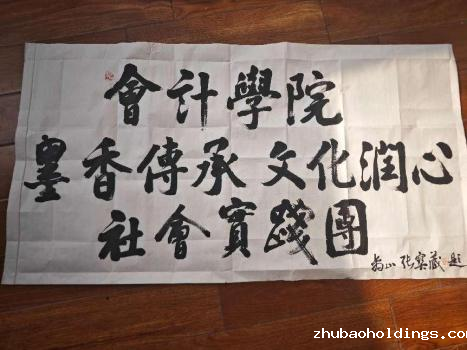 會计學院
墨香傳承 文化润心
社會實踐團
张宝藏 题
www.zhubaoholdings.com